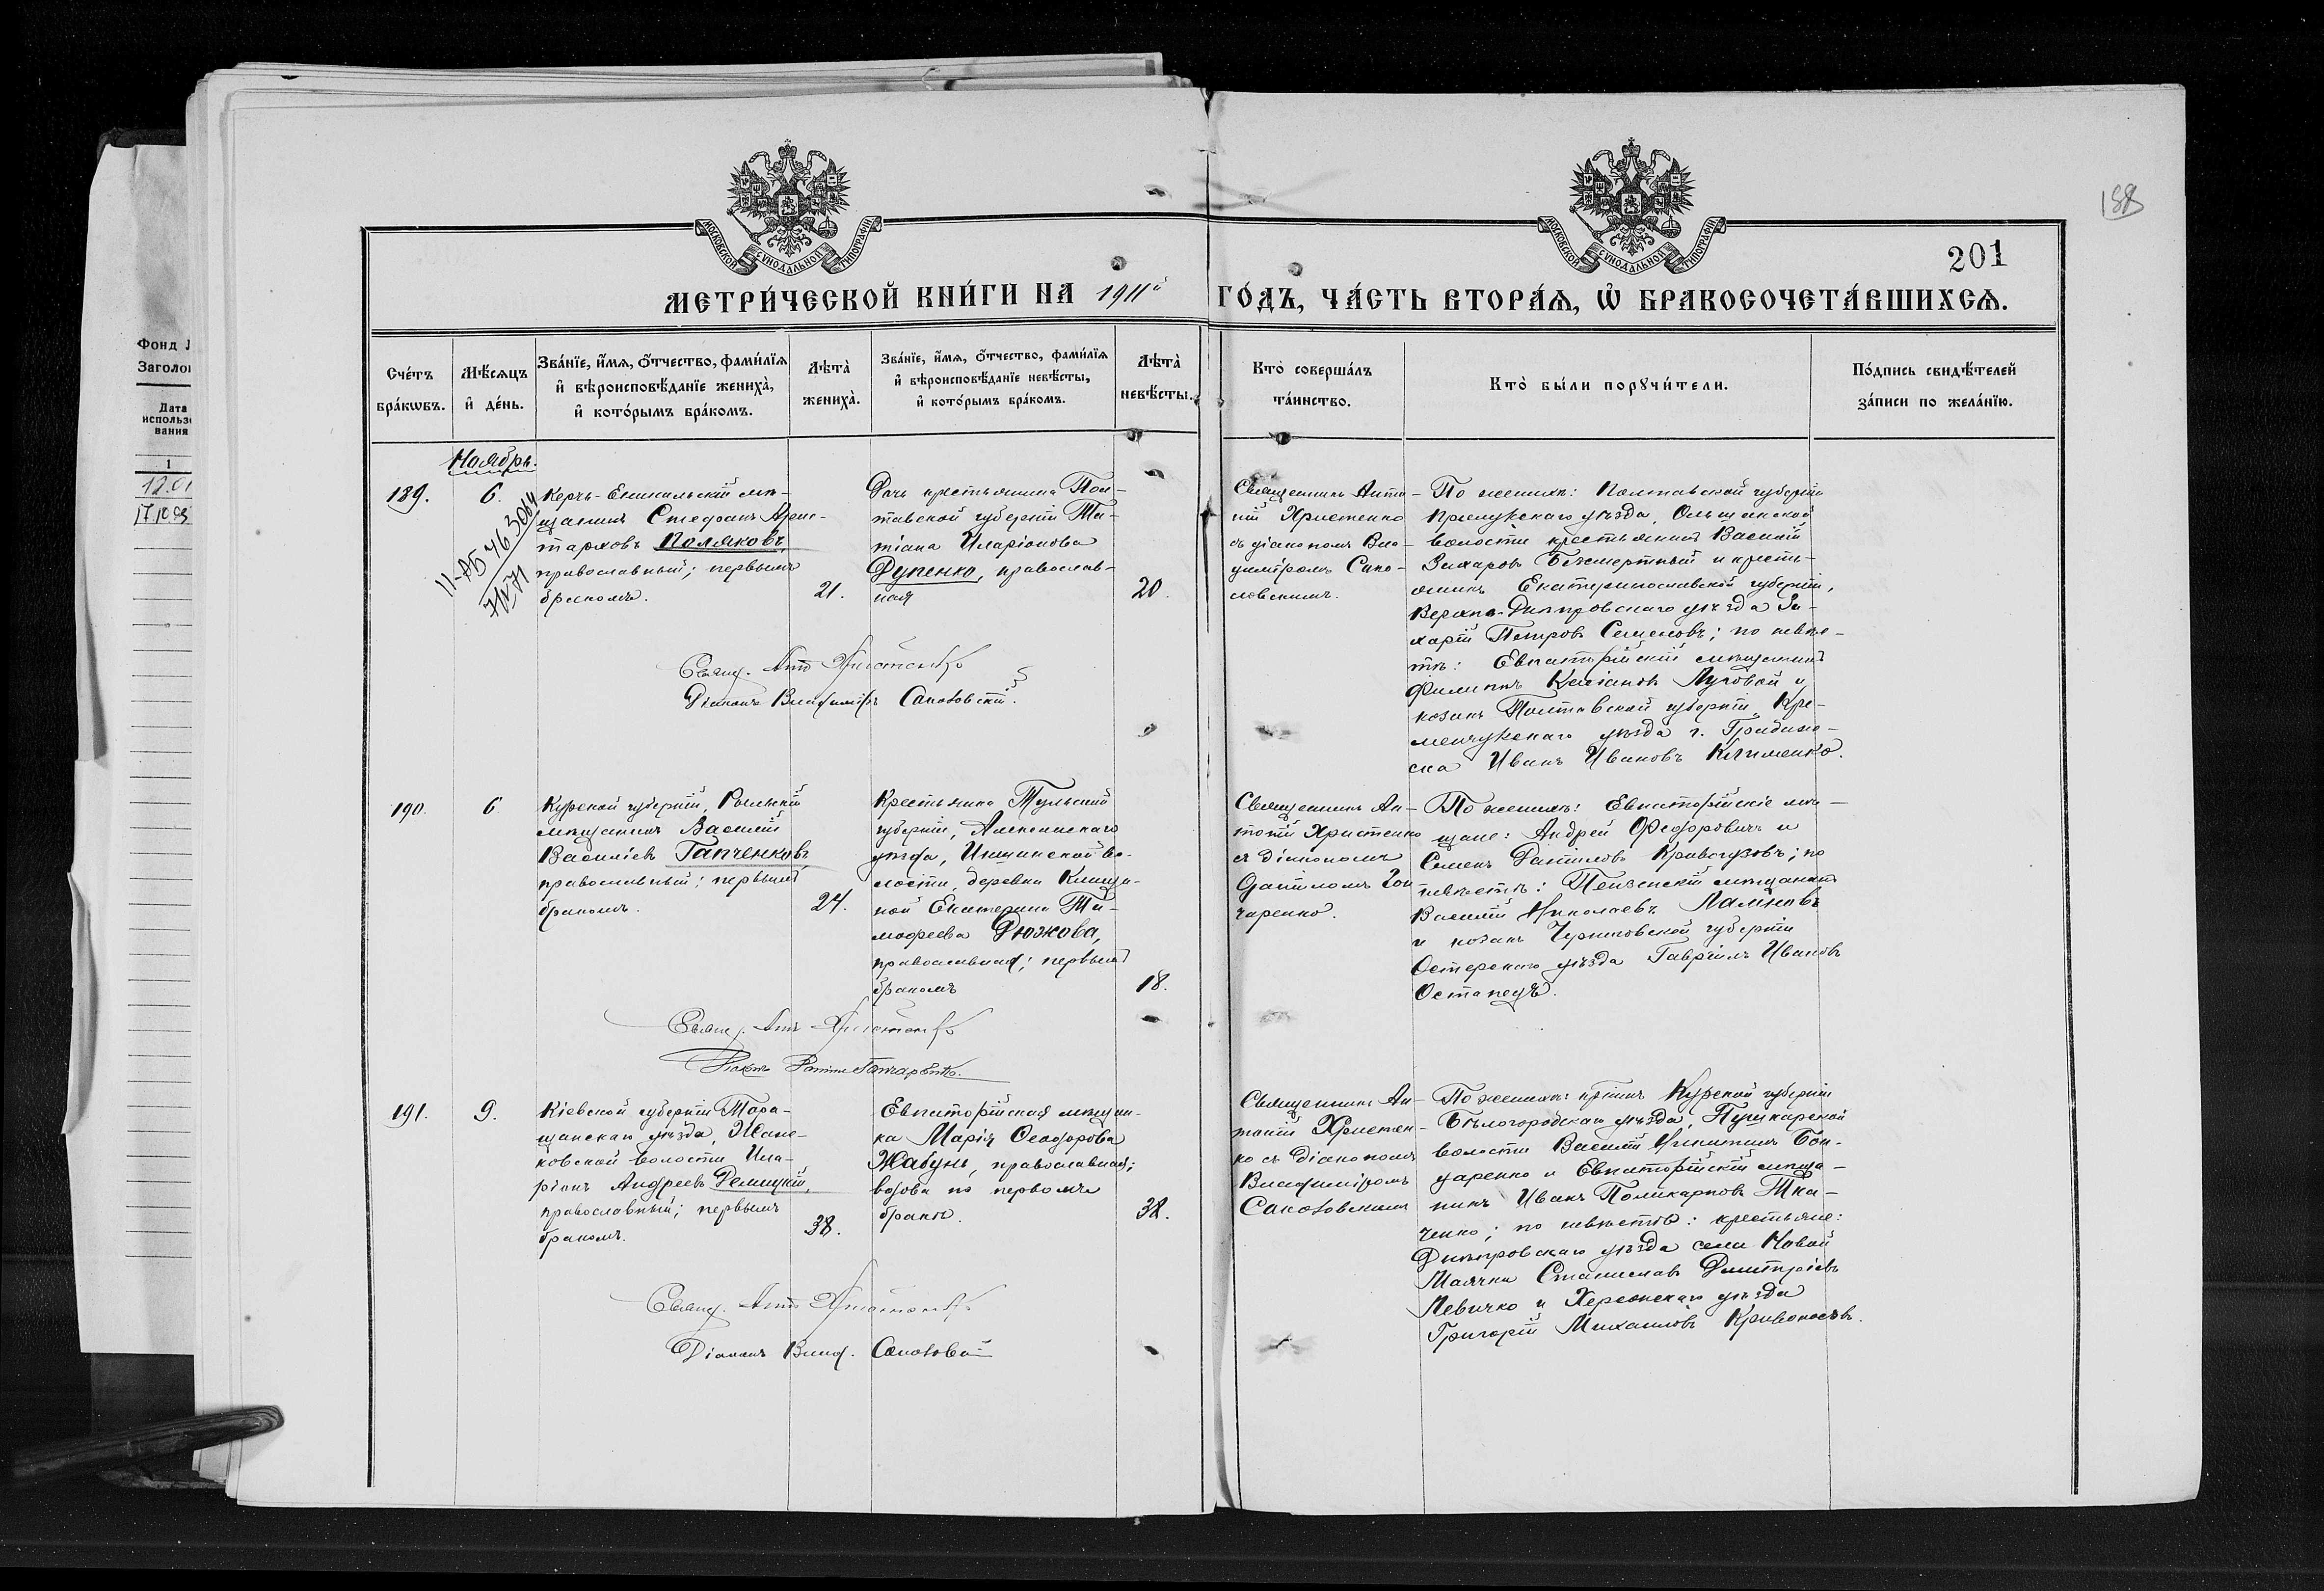 188
201
МОСКОВСКОЙ СУНОДАЛЬНОЙ ТИПОГРАФІИ
МОСКОВСКОЙ СУНОДАЛЬНОЙ ТИПОГРАФІИ
МЕТРИ́ЧЕСКОЙ КНИ́ГИ НА 1911й ГО́ДЪ, ЧА́СТЬ ВТОРА́Ѧ, Ѽ БРАКОСОЧЕТА́ВШИХСѦ.
Фонд
Дата
1
12.01
Сче́тъ
бра́кѡвъ.
Мѣ́сяцъ
и҆ де́нь.
Зва́нїе, и҆́мѧ, ѻ҆́тчество, фами́лїѧ
и҆ вѣроисповѣ́данїе жениха̀,
и҆ кото́рымъ бра́комъ.
Лѣта̀
жениха̀.
Зва́нїе, и҆́мѧ, ѻ҆́тчество, фами́лїѧ
и҆ вѣроисповѣ́данїе невѣ́сты,
и҆ кото́рымъ бра́комъ.
Лѣта̀
невѣ́сты.
Кто̀ соверша́лъ
та́инство.
Кто̀ бы́ли порꙋчи́тели.
По́дпись свидѣ́телей
за́писи по жела́нїю.
Ноябрь.
189.
6.
II-АБ 463064
7/IV 71
Керчь-Еникальскій мѣ-
щанинъ Стефанъ Арис-
тарховъ Поляковъ,
православный; первымъ
бракомъ.
21.
Дочь крестьянина Пол-
тавской губерніи Та-
тіана Иларіонова
Дупенко, православ-
ная
20.
Священникъ Анто-
ній Христенко
съ діакономъ Вла-
диміромъ Сако-
ловскимъ.
По женихѣ: Полтавской губерніи
Прилукскаго уѣзда, Ольшанской
волости крестьянинъ Василій
Захаровъ Безсмертный и кресть-
янинъ Екатеринославской губерніи,
Верхне-Днѣпровскаго уѣзда За-
харій Петровъ Семеновъ; по невѣс-
тѣ: Евпаторійскій мѣщанинъ
Филиппъ Луговой и
козакъ Полтавской губерніи, Кре-
менчугскаго уѣзда
Иванъ Ивановъ Клименко.
Свящ. Ант Христенко
Діаконъ Владиміръ
190.
6
Курской губерніи, Рыльскій
мѣщанинъ Василій
Василіевъ Гапченковъ
православный; первымъ
бракомъ.
24.
Крестьянка Тульской
губерніи, Алексинскаго
уѣзда, во-
лости, деревни
Екатерина Ти-
мофеева Дюжова,
православная; первымъ
бракомъ
18.
Священникъ Ан-
тоній Христенко
съ діакономъ
Даніиломъ Гон
чаренко.
По женихѣ: Евпаторійскіе мѣ-
щане: Андрей Феодоровичъ и
Семенъ Даніиловъ Кривогузовъ; по
невѣстѣ: Пензенскій мѣщанинъ
Василій Николаевъ
и козакъ Черниговской губерніи
Остерскаго уѣзда Гавріилъ Ивановъ
Остапецъ.
Свящ. Ант Христенко
Діаконъ Гончаренко.
191.
9.
Кіевской губерніи Тара-
щанскаго уѣзда, Жаш-
ковской волости Ила-
ріонъ Андреевъ Демицкій,
православный; первымъ
бракомъ.
38.
Евпаторійская мѣщан-
ка Марія Ѳеодорова
Жабунь, православная;
вдова по первомъ
бракѣ.
38.
Священникъ Ан-
тоній Христен-
ко съ діакономъ
Владиміромъ
По женихѣ: кр-нинъ Курской губерніи
Бѣлогородскаго уѣзда, Пушкарской
волости Василій Никитинъ Бон-
даренко и Евпаторійскій мѣща-
нинъ Иванъ Поликарповъ Тка-
ченко; по невѣстѣ: крестьяне:
Днѣпровскаго уѣзда села Новой
Маячки Станиславъ Дмитріевъ
Левичко и Херсонскаго уѣзда
Григорій Михаиловъ Кривоносовъ.
Свящ. Ант Христенко
Діаконъ Влад.